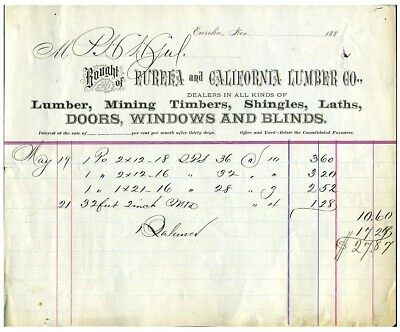 Eureka, Nev. 188
M P. H. Hjul.
Bought of EUREKA and CALIFORNIA LUMBER CO.,
DEALERS IN ALL KINDS OF
Lumber, Mining Timbers, Shingles, Laths,
DOORS, WINDOWS AND BLINDS.
Interest at the rate of per cent per month after thirty days. Office and Yard—Below the Consolidated Furnaces.
May 19 1 Po 2x12-18 36 @ 10 3 60
1 " 2x12-16 32 " " 3 20
1 " 1x21-16 " 28 " 9 2 52
21 32 feet 2 inch " 4 1 28
10.60
1 Balance " 17 28
$ 27.87